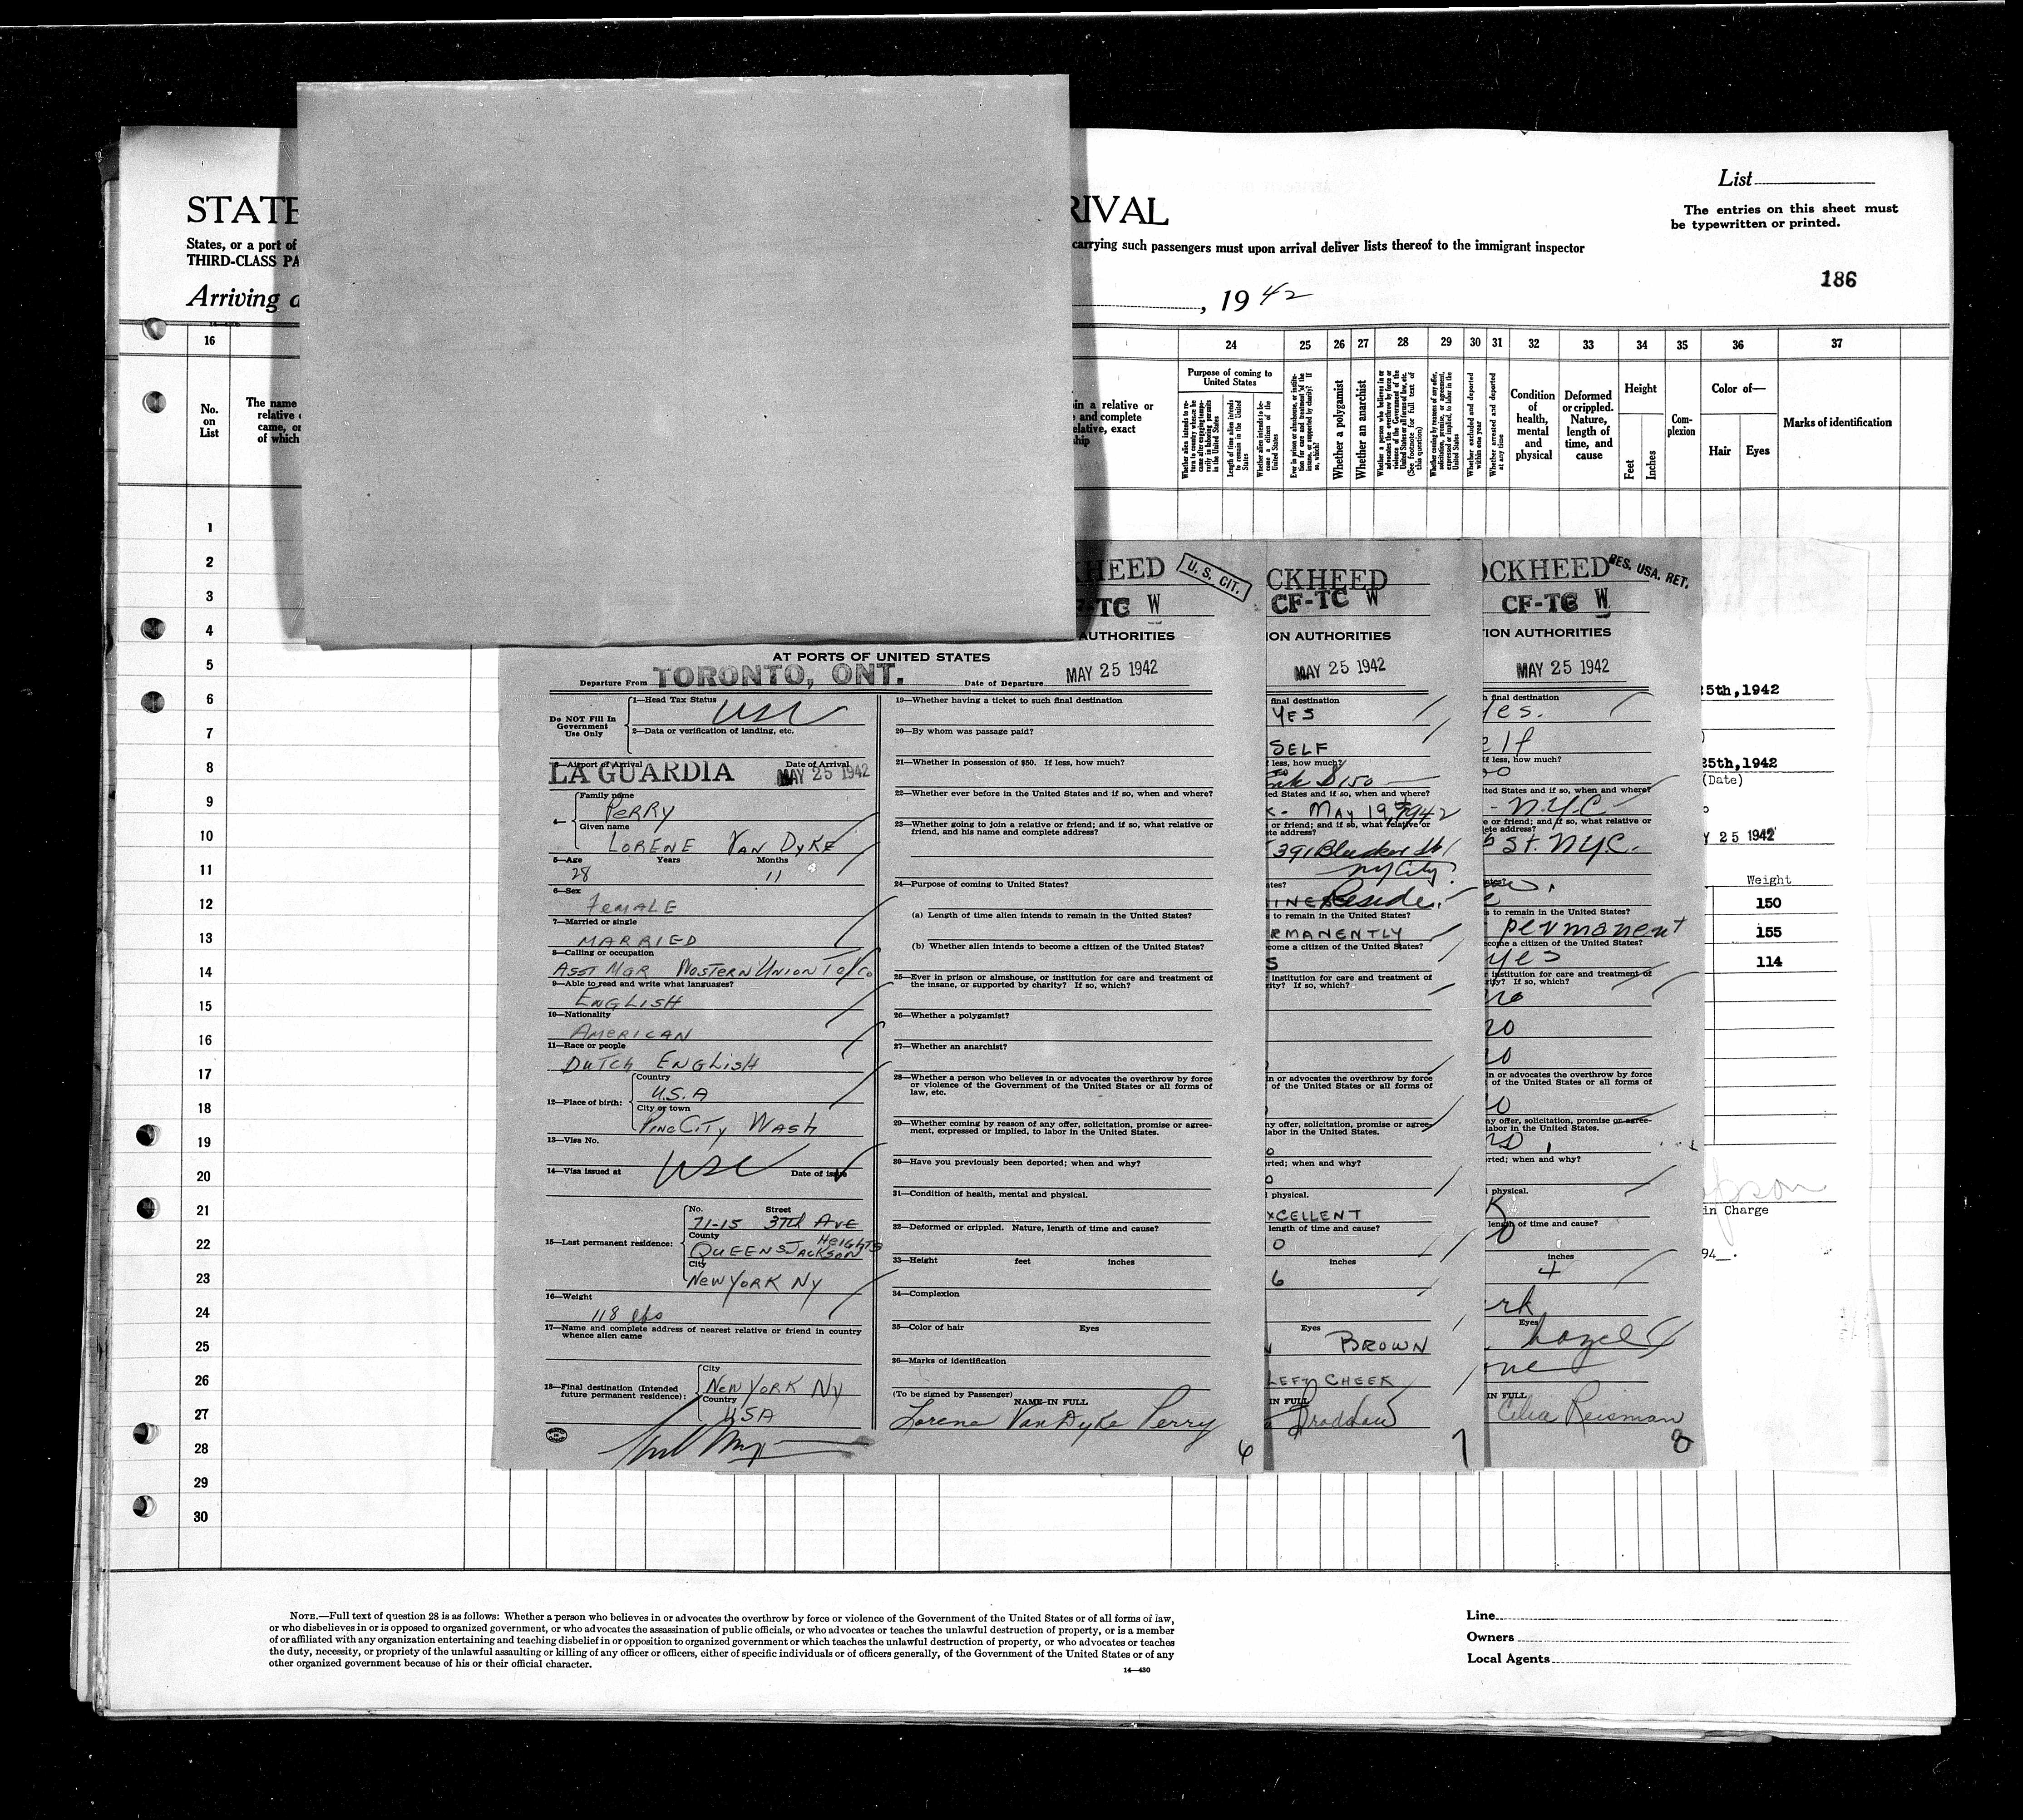 List
The entries on this sheet must
be typewritten or printed.
STATE
RIVAL
States, or a port of
carrying such passengers must upon arrival deliver lists thereof to the immigrant inspector
THIRD-CLASS PA
186
Arriving a
, 19 42
16
24 25 26 27 28 29 30 31 32 33 34 35 36 37
No.
on
List
The name
relative
came, or
of which
in a relative or
and complete
elative, exact
ship
Purpose of coming to
United States
Whether alien intends to re-
turn to country whence he
came after engaging tempo-
rarily in laboring pursuits
in the United States
Length of time alien intends
to remain in the United
States
Whether alien intends to be-
come a citizen of the
United States
Ever in prison or almshouse, or institu-
tion for care and treatment of the
insane, or supported by charity? If
so, which?
Whether a polygamist
Whether an anarchist
Whether a person who believes in or
advocates the overthrow by force or
violence of the Government of the
United States or all forms of law, etc.
(See footnote for full text of
this question)
Whether coming by reason of any offer,
solicitation, promise, or agreement,
expressed or implied, to labor in the
United States
Whether excluded and deported
within one year
Whether arrested and deported
at any time
Condition
of
health,
mental
and
physical
Deformed
or crippled.
Nature,
length of
time, and
cause
Height
Feet
Inches
Com-
plexion
Color of—
Hair Eyes
Marks of identification
1
2
3
4
5
6
7
8
9
10
11
12
13
14
15
16
17
18
19
20
21
22
23
24
25
26
27
28
29
30
KHEED
U. S. CIT.
F-TC W
AUTHORITIES
AT PORTS OF UNITED STATES
Departure From TORONTO, ONT. Date of Departure MAY 25 1942
Do NOT Fill In
Government
Use Only
1—Head Tax Status
USC
2—Data or verification of landing, etc.
3—Airport of Arrival Date of Arrival
LA GUARDIA MAY 25 1942
4—
Family name
PERRY
Given name
LORENE VAN DYKE
5—Age Years Months
28 11
6—Sex
FEMALE
7—Married or single
MARRIED
8—Calling or occupation
ASST MGR WESTERN UNION Tel Co
9—Able to read and write what languages?
ENGLISH
10—Nationality
AMERICAN
11—Race or people
DUTCH ENGLISH
12—Place of birth:
Country
U.S.A
City or town
PINE CITY WASH
13—Visa No.
14—Visa issued at USC Date of issue
15—Last permanent residence:
No. Street
71-15 37th AVE
County
QUEENS JACKSON HEIGHTS
City
NEW YORK NY
16—Weight
118 lbs
17—Name and complete address of nearest relative or friend in country
whence alien came
18—Final destination (Intended
future permanent residence):
City
NEW YORK NY
Country
USA
19—Whether having a ticket to such final destination
20—By whom was passage paid?
21—Whether in possession of $50. If less, how much?
22—Whether ever before in the United States and if so, when and where?
23—Whether going to join a relative or friend; and if so, what relative or
friend, and his name and complete address?
24—Purpose of coming to United States?
(a) Length of time alien intends to remain in the United States?
(b) Whether alien intends to become a citizen of the United States?
25—Ever in prison or almshouse, or institution for care and treatment of
the insane, or supported by charity? If so, which?
26—Whether a polygamist?
27—Whether an anarchist?
28—Whether a person who believes in or advocates the overthrow by force
or violence of the Government of the United States or all forms of
law, etc.
29—Whether coming by reason of any offer, solicitation, promise or agree-
ment, expressed or implied, to labor in the United States.
30—Have you previously been deported; when and why?
31—Condition of health, mental and physical.
32—Deformed or crippled. Nature, length of time and cause?
33—Height feet inches
34—Complexion
35—Color of hair Eyes
36—Marks of identification
(To be signed by Passenger)
NAME IN FULL
Lorene VanDyke Perry
6
CKHEED
CF-TC W
ION AUTHORITIES
MAY 25 1942
final destination
YES
SELF
f less, how much?
$150
ted States and if so, when and where?
May 19, 1942
or friend; and if so, what relative or
ete address?
391 Bleecker St
NY City
tes?
Reside
to remain in the United States?
RMANENTLY
come a citizen of the United States?
S
institution for care and treatment of
ity? If so, which?
in or advocates the overthrow by force
of the United States or all forms of
ny offer, solicitation, promise or agree-
labor in the United States.
O
rted; when and why?
O
physical.
XCELLENT
length of time and cause?
O
inches
6
Eyes
BROWN
LEFT CHEEK
IN FULL
Bradshaw
7
OCKHEED
RES. USA. RET.
CF-TC W
ION AUTHORITIES
MAY 25 1942
h final destination
Yes.
elf
if less, how much?
00
ited States and if so, when and where?
- N.Y.C.
e or friend; and if so, what relative or
ete address?
St. NYC.
ates?
s to remain in the United States?
permanent
ecome a citizen of the United States?
yes
r institution for care and treatment of
rity? If so, which?
no
no
no
in or advocates the overthrow by force
t of the United States or all forms of
no
ny offer, solicitation, promise or agree-
labor in the United States.
no
rted; when and why?
l physical.
length of time and cause?
inches
4
rk
Eyes
hazel
one
IN FULL
Celia Reisman
8
25th, 1942
25th, 1942
(Date)
Y 25 1942
Weight
150
155
114
pson
in Charge
94__.
NOTE.—Full text of question 28 is as follows: Whether a person who believes in or advocates the overthrow by force or violence of the Government of the United States or of all forms of law,
or who disbelieves in or is opposed to organized government, or who advocates the assassination of public officials, or who advocates or teaches the unlawful destruction of property, or is a member
of or affiliated with any organization entertaining and teaching disbelief in or opposition to organized government or which teaches the unlawful destruction of property, or who advocates or teaches
the duty, necessity, or propriety of the unlawful assaulting or killing of any officer or officers, either of specific individuals or of officers generally, of the Government of the United States or of any
other organized government because of his or their official character.
14—430
Line
Owners
Local Agents